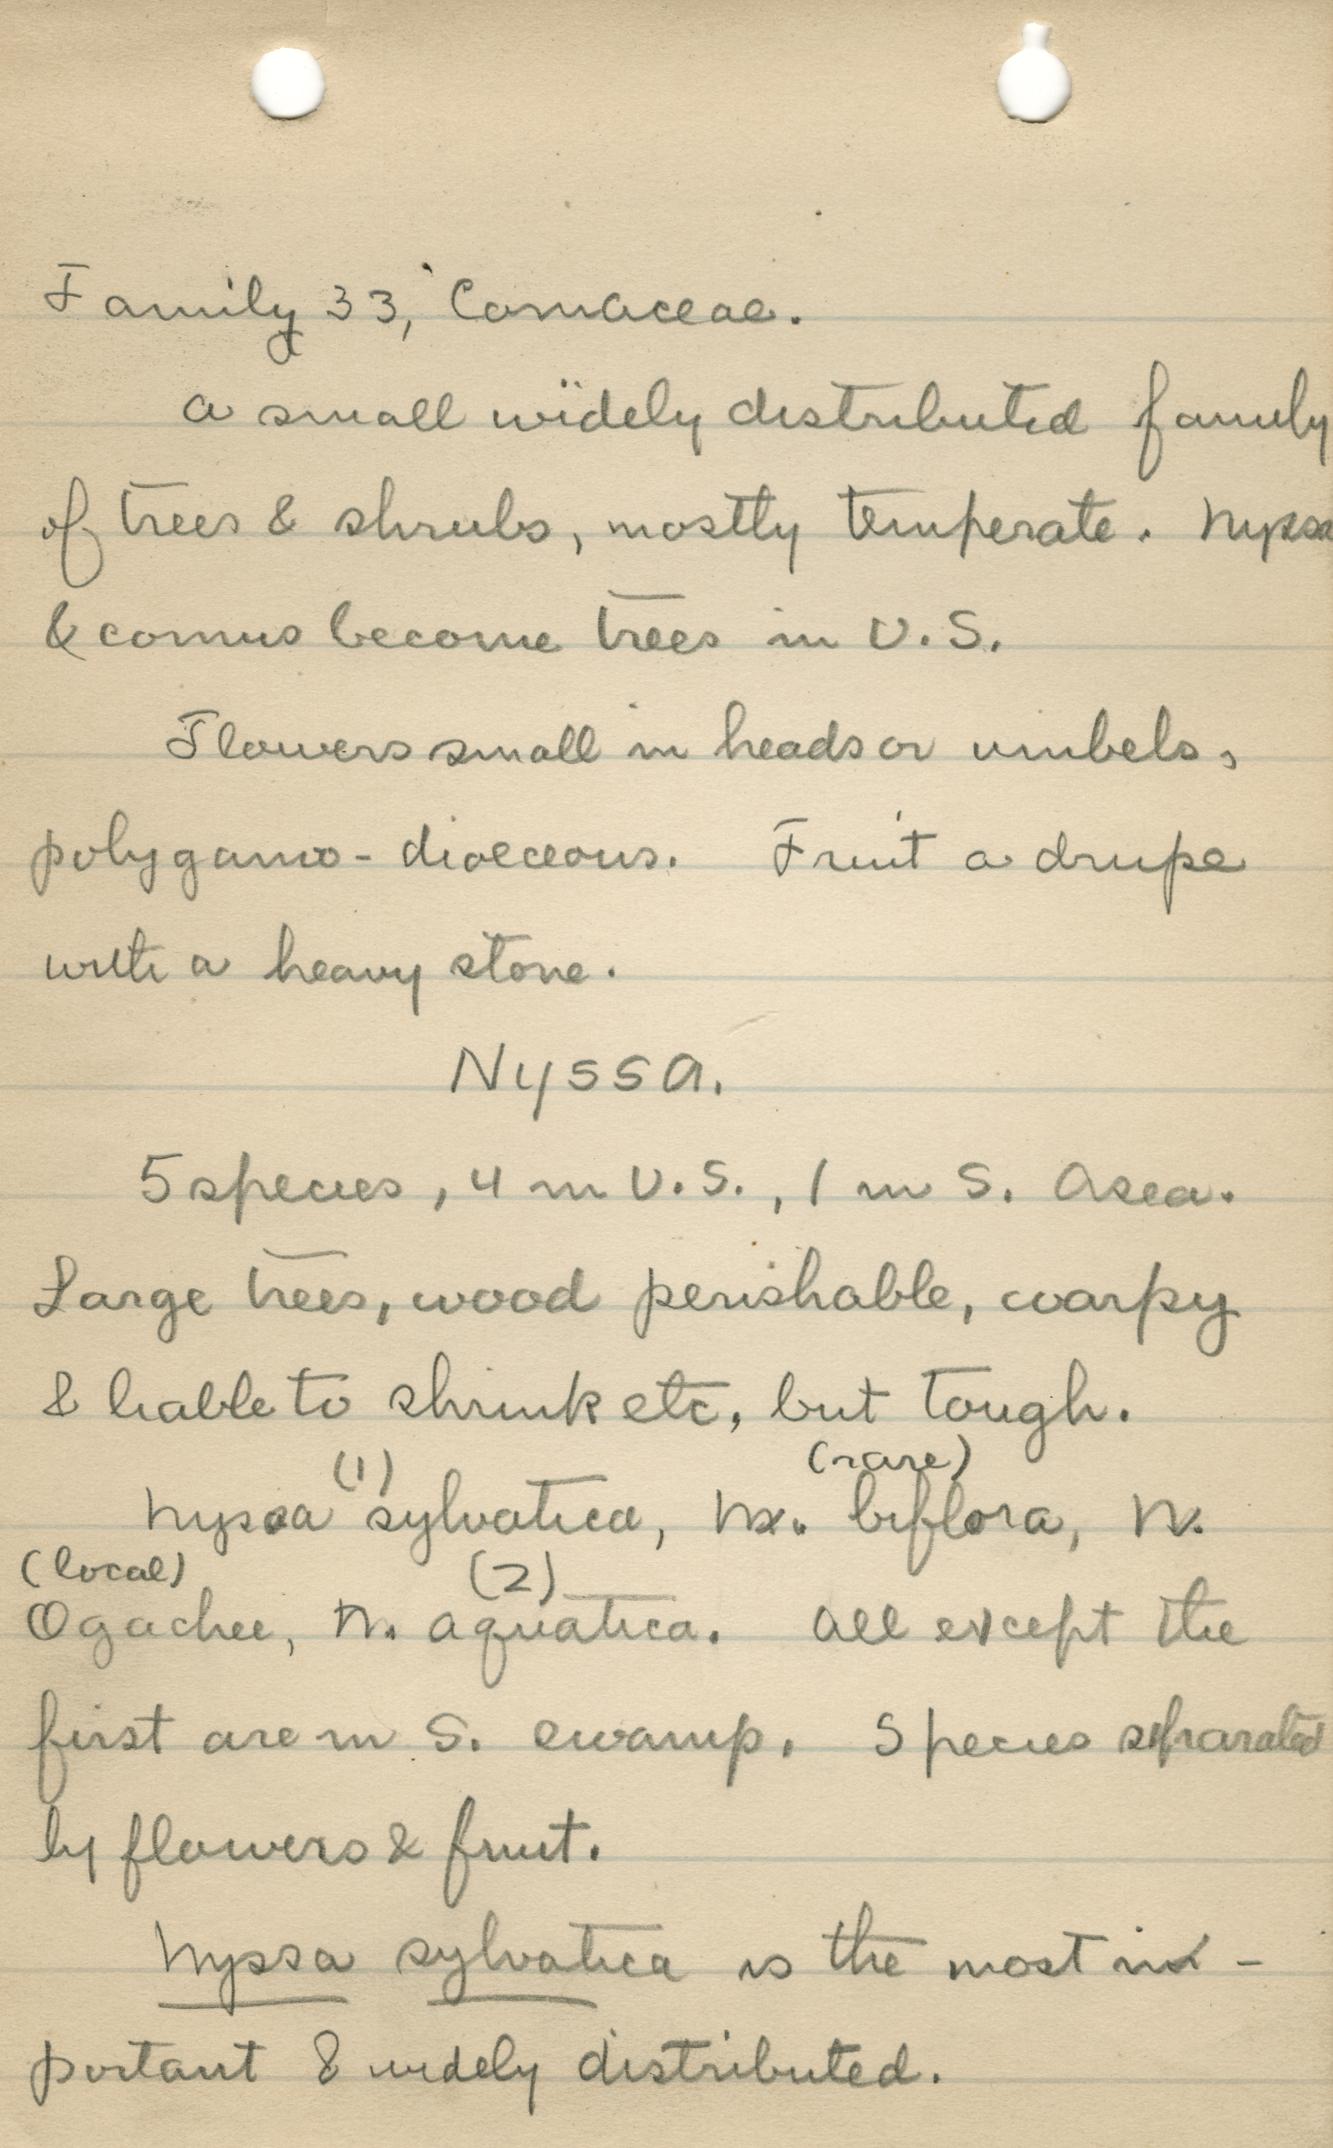 Family 33, Cornaceae.
a small widely distributed family
of trees & shrubs, mostly temperate. Nyssa
& cornus become trees in U.S.
Flowers small in heads or umbels,
polygamo-dioeceous. Fruit a drupe
with a heavy stone.
Nyssa.
5 species, 4 in U.S., 1 in S. Asea.
Large trees, wood perishable, warpy
& liable to shrink etc, but tough.
(1) (rare)
Nyssa sylvatica, N. biflora, N.
(local) (2)
Ogachee, N. aquatica. All except the
first are in S. swamp. Species separated
by flowers & fruit.
Nyssa sylvatica is the most im-
portant & widely distributed.